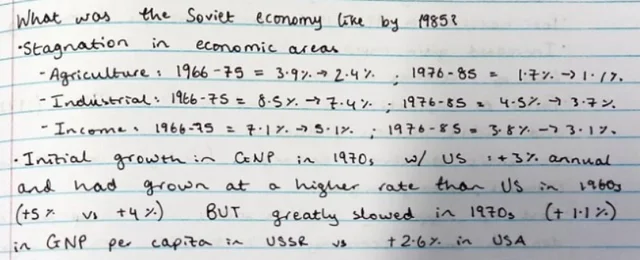 What was the Soviet economy like by 1985?
• Stagnation in economic areas
- Agriculture: 1966-75 = 3.9% → 2.4% ; 1976-85 = 1.7% → 1.1%.
- Industrial: 1966-75 = 8.5% → 7.4% ; 1976-85 = 4.5% → 3.7%.
- Income: 1966-75 = 7.1% → 5.1% ; 1976-85 = 3.8% → 3.1%.
• Initial growth in GNP in 1970s w/ US : +3% annual
and had grown at a higher rate than US in 1960s
(+5% vs +4%) BUT greatly slowed in 1970s (+1.1%)
in GNP per capita in USSR vs +2.6% in USA